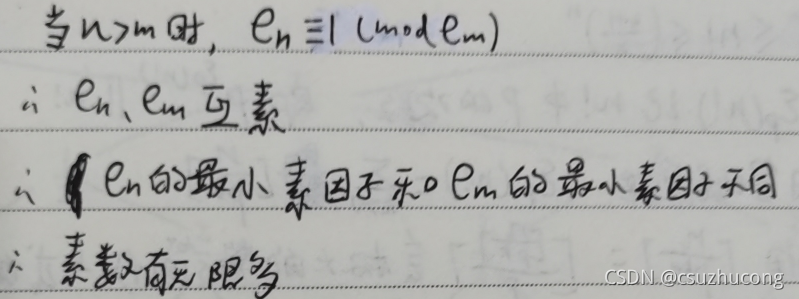 当n>m时, en≡1 (mod em)
∴ en、em 互素
∴ en的最小素因子和em的最小素因子不同
∴ 素数有无限多
CSDN @csuzhucong